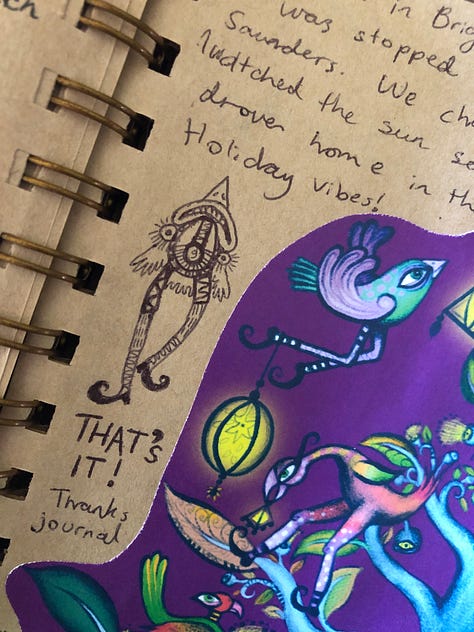 ch
in Brig
was stopped
Saunders. We cha
I watched the sun se
drover home in th
Holiday vibes!
THAT'S
IT!
Thanks
journal